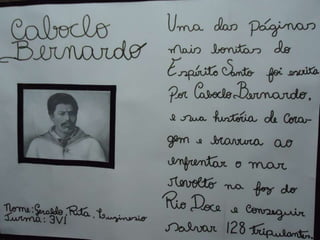 Caboclo
Bernardo
Uma das páginas
mais bonitas do
Espírito Santo foi escrita
por Caboclo Bernardo,
e sua história de cora-
gem e bravura ao
enfrentar o mar
revolto na foz do
Rio Doce e conseguir
salvar 128 tripulantes.
Nome: Geraldo, Rita,
Turma: 3V1